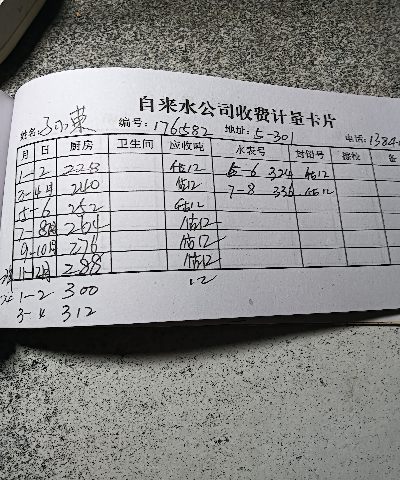 自来水公司收费计量卡片
姓名: 编号: 176582 地址: 5-301 电话: 1384
月 日 厨房 卫生间 应收吨 水表号 封铅号 备
1-2 228 估12 5-6 324 估12
3-4月 240 估12 7-8 336 估12
5-6 252 估12
7-8月 264 估12
9-10月 276 估12
11-12月 288 估12
1-2 300 12
3-4 312